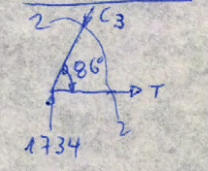 2 C3
86° T
1734 2